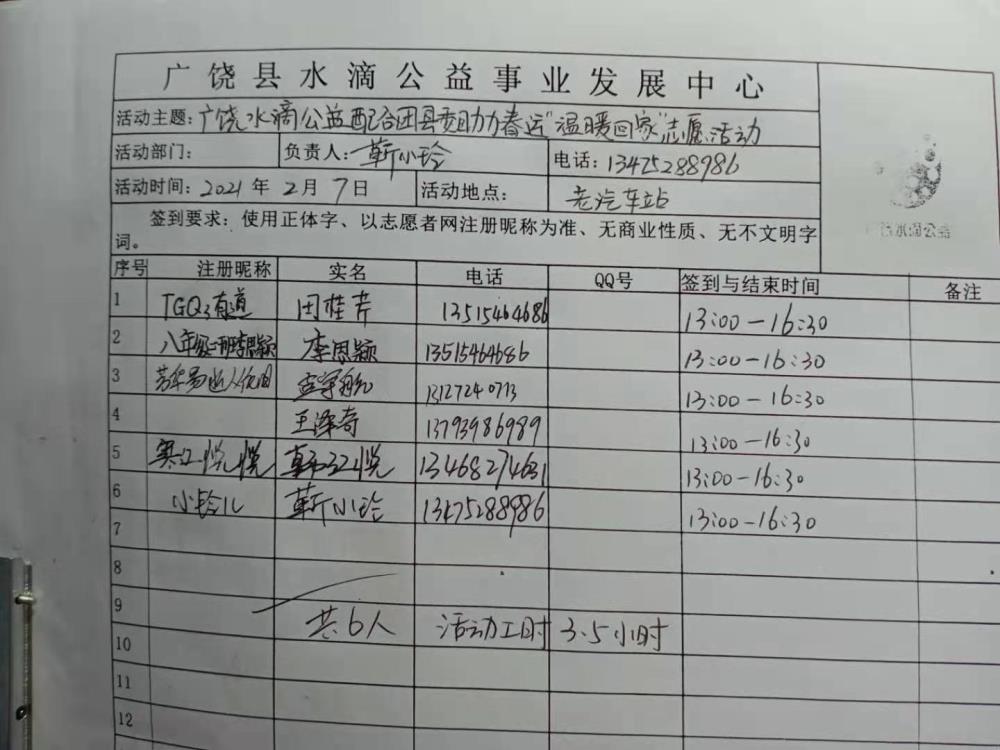 广饶县水滴公益事业发展中心
活动主题：广饶水滴公益配合团县委助力春运"温暖回家"志愿活动
活动部门： 负责人：靳小玲 电话：13475288986
活动时间：2021年2月7日 活动地点： 老汽车站
签到要求：使用正体字、以志愿者网注册昵称为准、无商业性质、无不文明字
词。
广饶水滴公益
序号 注册昵称 实名 电话 QQ号 签到与结束时间 备注
1 TGQ3有道 田桂芹 13515464686 13:00-16:30
2 八年级二班李思颖 李思颖 13515464686 13:00-16:30
3 孟宇航 13127240713 13:00-16:30
4 王泽奇 13793986989 13:00-16:30
5 寒江悦悦 韩江悦 13468274631 13:00-16:30
6 小铃儿 靳小玲 13475288986 13:00-16:30
7
8
9 共6人 活动工时 3.5小时
10
11
12